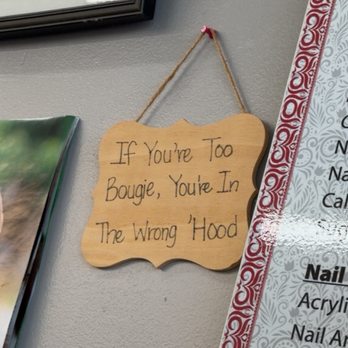 If You're Too
Bougie, You're In
The Wrong 'Hood
Nail
Acryli
Nail Ar